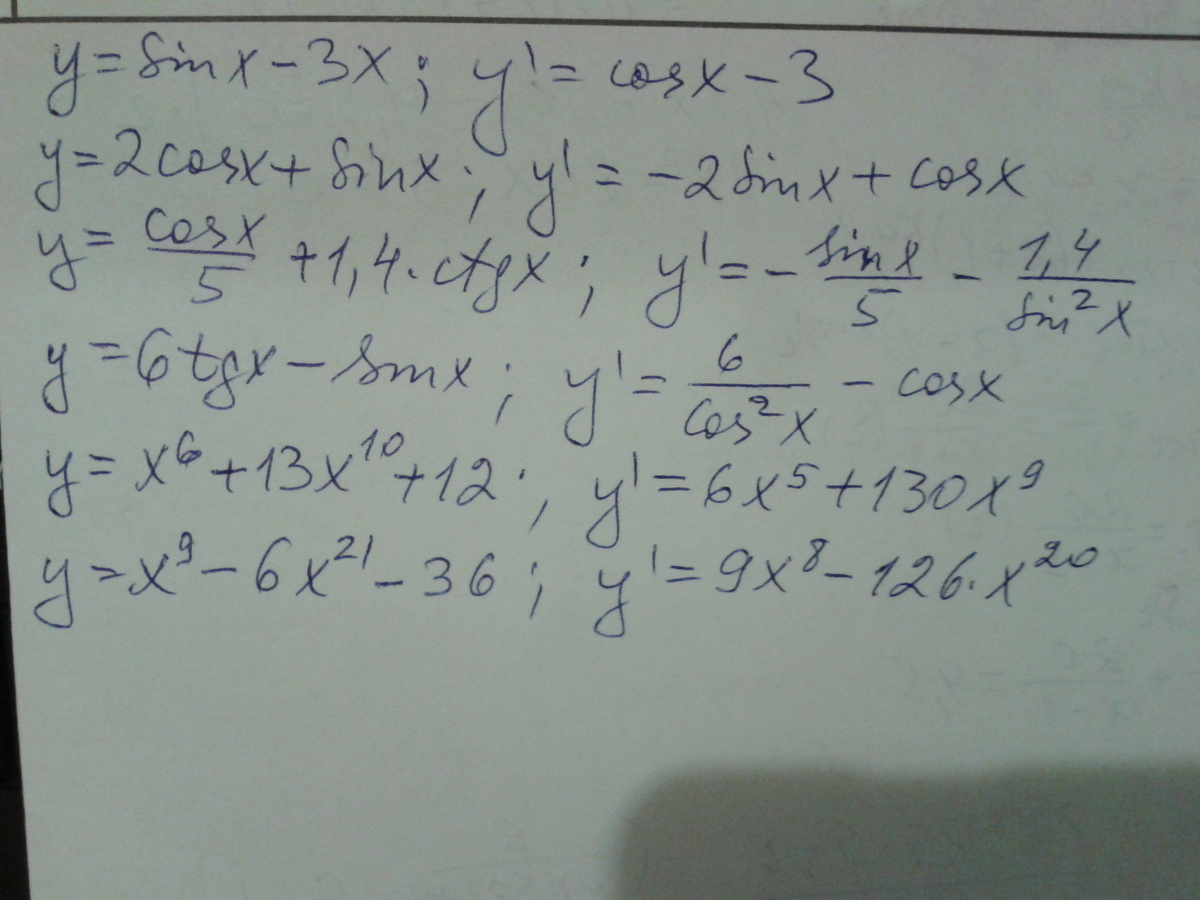 y = sinx - 3x ; y' = cosx - 3
y = 2cosx + sinx ; y' = -2sinx + cosx
y = cosx/5 + 1,4 · ctgx ; y' = - sinx/5 - 1,4/sin²x
y = 6tgx - sinx ; y' = 6/cos²x - cosx
y = x⁶ + 13x¹⁰ + 12 ; y' = 6x⁵ + 130x⁹
y = x⁹ - 6x²¹ - 36 ; y' = 9x⁸ - 126 · x²⁰